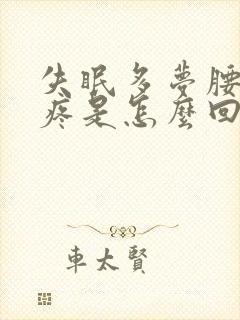 失眠多夢腰
疼是怎麼回
車太賢